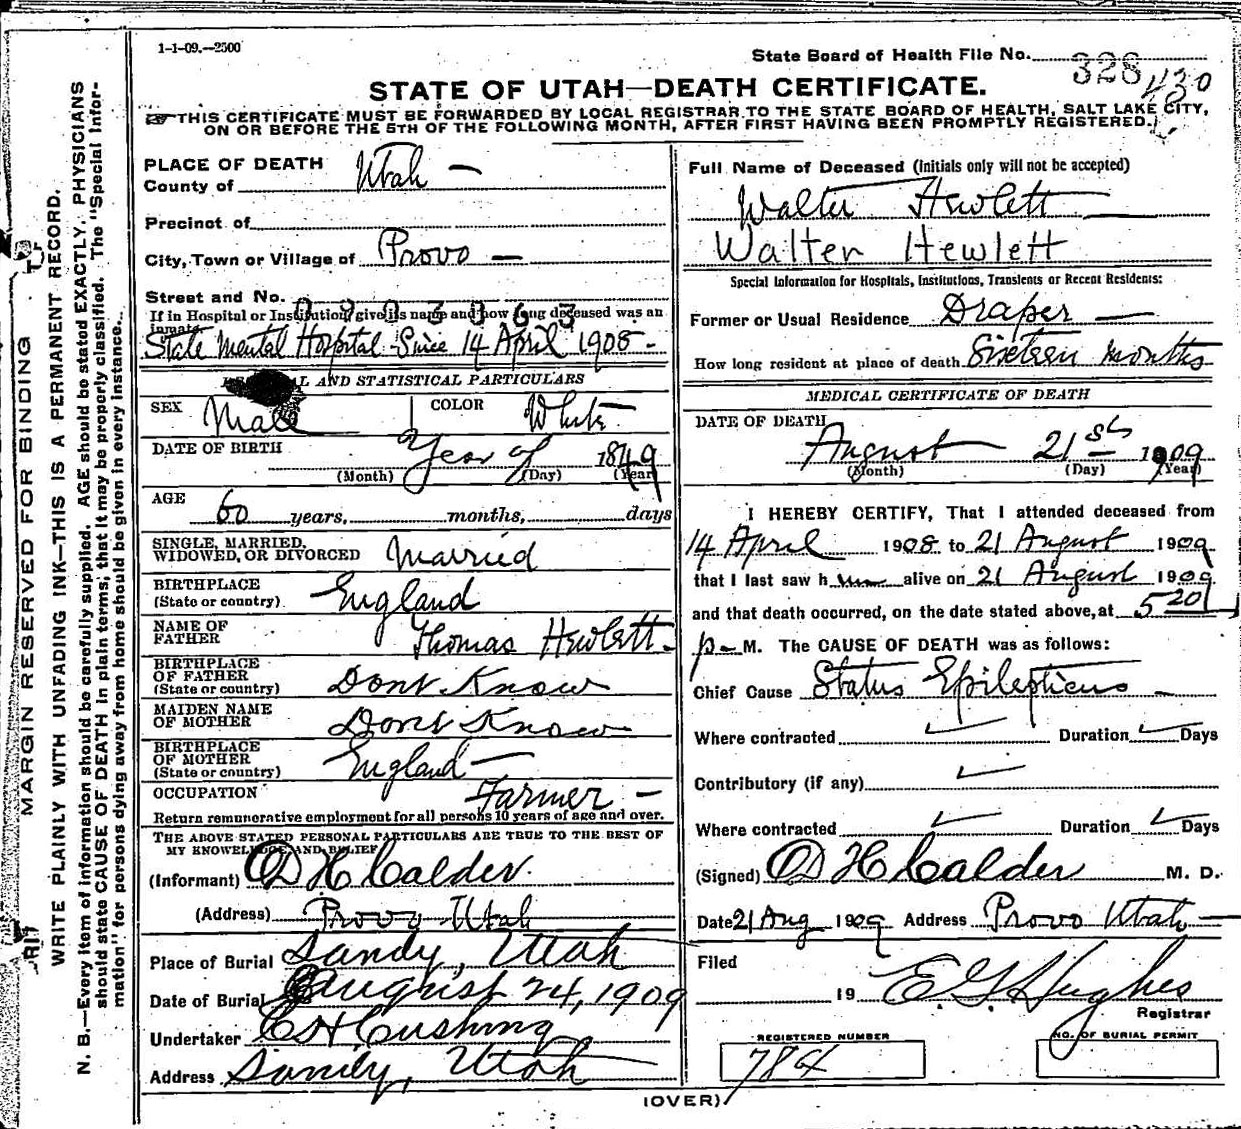 1-1-09.—2500
State Board of Health File No. 328 430
STATE OF UTAH—DEATH CERTIFICATE.
THIS CERTIFICATE MUST BE FORWARDED BY LOCAL REGISTRAR TO THE STATE BOARD OF HEALTH, SALT LAKE CITY,
ON OR BEFORE THE 5TH OF THE FOLLOWING MONTH, AFTER FIRST HAVING BEEN PROMPTLY REGISTERED.
MARGIN RESERVED FOR BINDING
WRITE PLAINLY WITH UNFADING INK—THIS IS A PERMANENT RECORD.
N. B.—Every item of information should be carefully supplied. AGE should be stated EXACTLY. PHYSICIANS
should state CAUSE OF DEATH in plain terms, that it may be properly classified. The "Special Infor-
mation" for persons dying away from home should be given in every instance.
PLACE OF DEATH
County of Utah —
Precinct of
City, Town or Village of Provo —
Street and No.
If in Hospital or Institution, give its name and how long deceased was an
inmate.
State Mental Hospital - Since 14 April 1908 -
AND STATISTICAL PARTICULARS
SEX Male COLOR White
DATE OF BIRTH Year of 1849
(Month) (Day) (Year)
AGE 60 years, months, days
SINGLE, MARRIED,
WIDOWED, OR DIVORCED Married
BIRTHPLACE
(State or country) England
NAME OF
FATHER Thomas Hewlett -
BIRTHPLACE
OF FATHER
(State or country) Dont Know
MAIDEN NAME
OF MOTHER Dont Know
BIRTHPLACE
OF MOTHER
(State or country) England —
OCCUPATION Farmer —
Return remunerative employment for all persons 10 years of age and over.
THE ABOVE STATED PERSONAL PARTICULARS ARE TRUE TO THE BEST OF
MY KNOWLEDGE AND BELIEF
(Informant) D H Calder.
(Address) Provo Utah
Place of Burial Sandy, Utah
Date of Burial August 24, 1909
Undertaker C H Cushing
Address Sandy, Utah
Full Name of Deceased (initials only will not be accepted)
Walter Hewlett —
Walter Hewlett
Special Information for Hospitals, Institutions, Transients or Recent Residents:
Former or Usual Residence Draper —
How long resident at place of death Sixteen months
MEDICAL CERTIFICATE OF DEATH
DATE OF DEATH
August 21st 1909
(Month) (Day) (Year)
I HEREBY CERTIFY, That I attended deceased from
14 April 1908 to 21 August 1909
that I last saw him alive on 21 August 1909
and that death occurred, on the date stated above, at 5 20
p - M. The CAUSE OF DEATH was as follows:
Chief Cause Status Epilepticus —
Where contracted Duration Days
Contributory (if any)
Where contracted Duration Days
(Signed) D H Calder M. D.
Date 21 Aug 1909 Address Provo Utah —
Filed
19 E. G. Hughes
Registrar
REGISTERED NUMBER
784
NO. OF BURIAL PERMIT
(OVER)